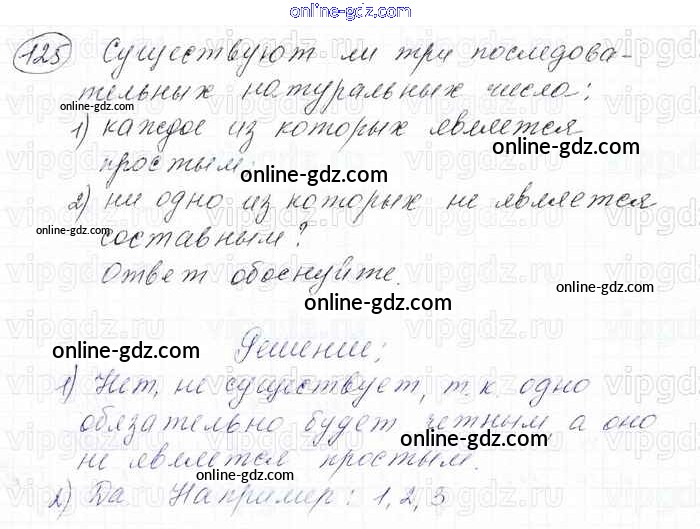 online-gdz.com
125 Существуют ли три последова-
тельных натуральных числа:
online-gdz.com
1) каждое из которых является
online-gdz.com
простым;
online-gdz.com
2) ни одно из которых не является
online-gdz.com
составным?
online-gdz.com
Ответ обоснуйте.
online-gdz.com
online-gdz.com
Решение:
online-gdz.com
1) Нет, не существует, т.к. одно
обязательно будет четным, а оно
online-gdz.com
не является простым.
online-gdz.com
2) Да. Например: 1, 2, 3